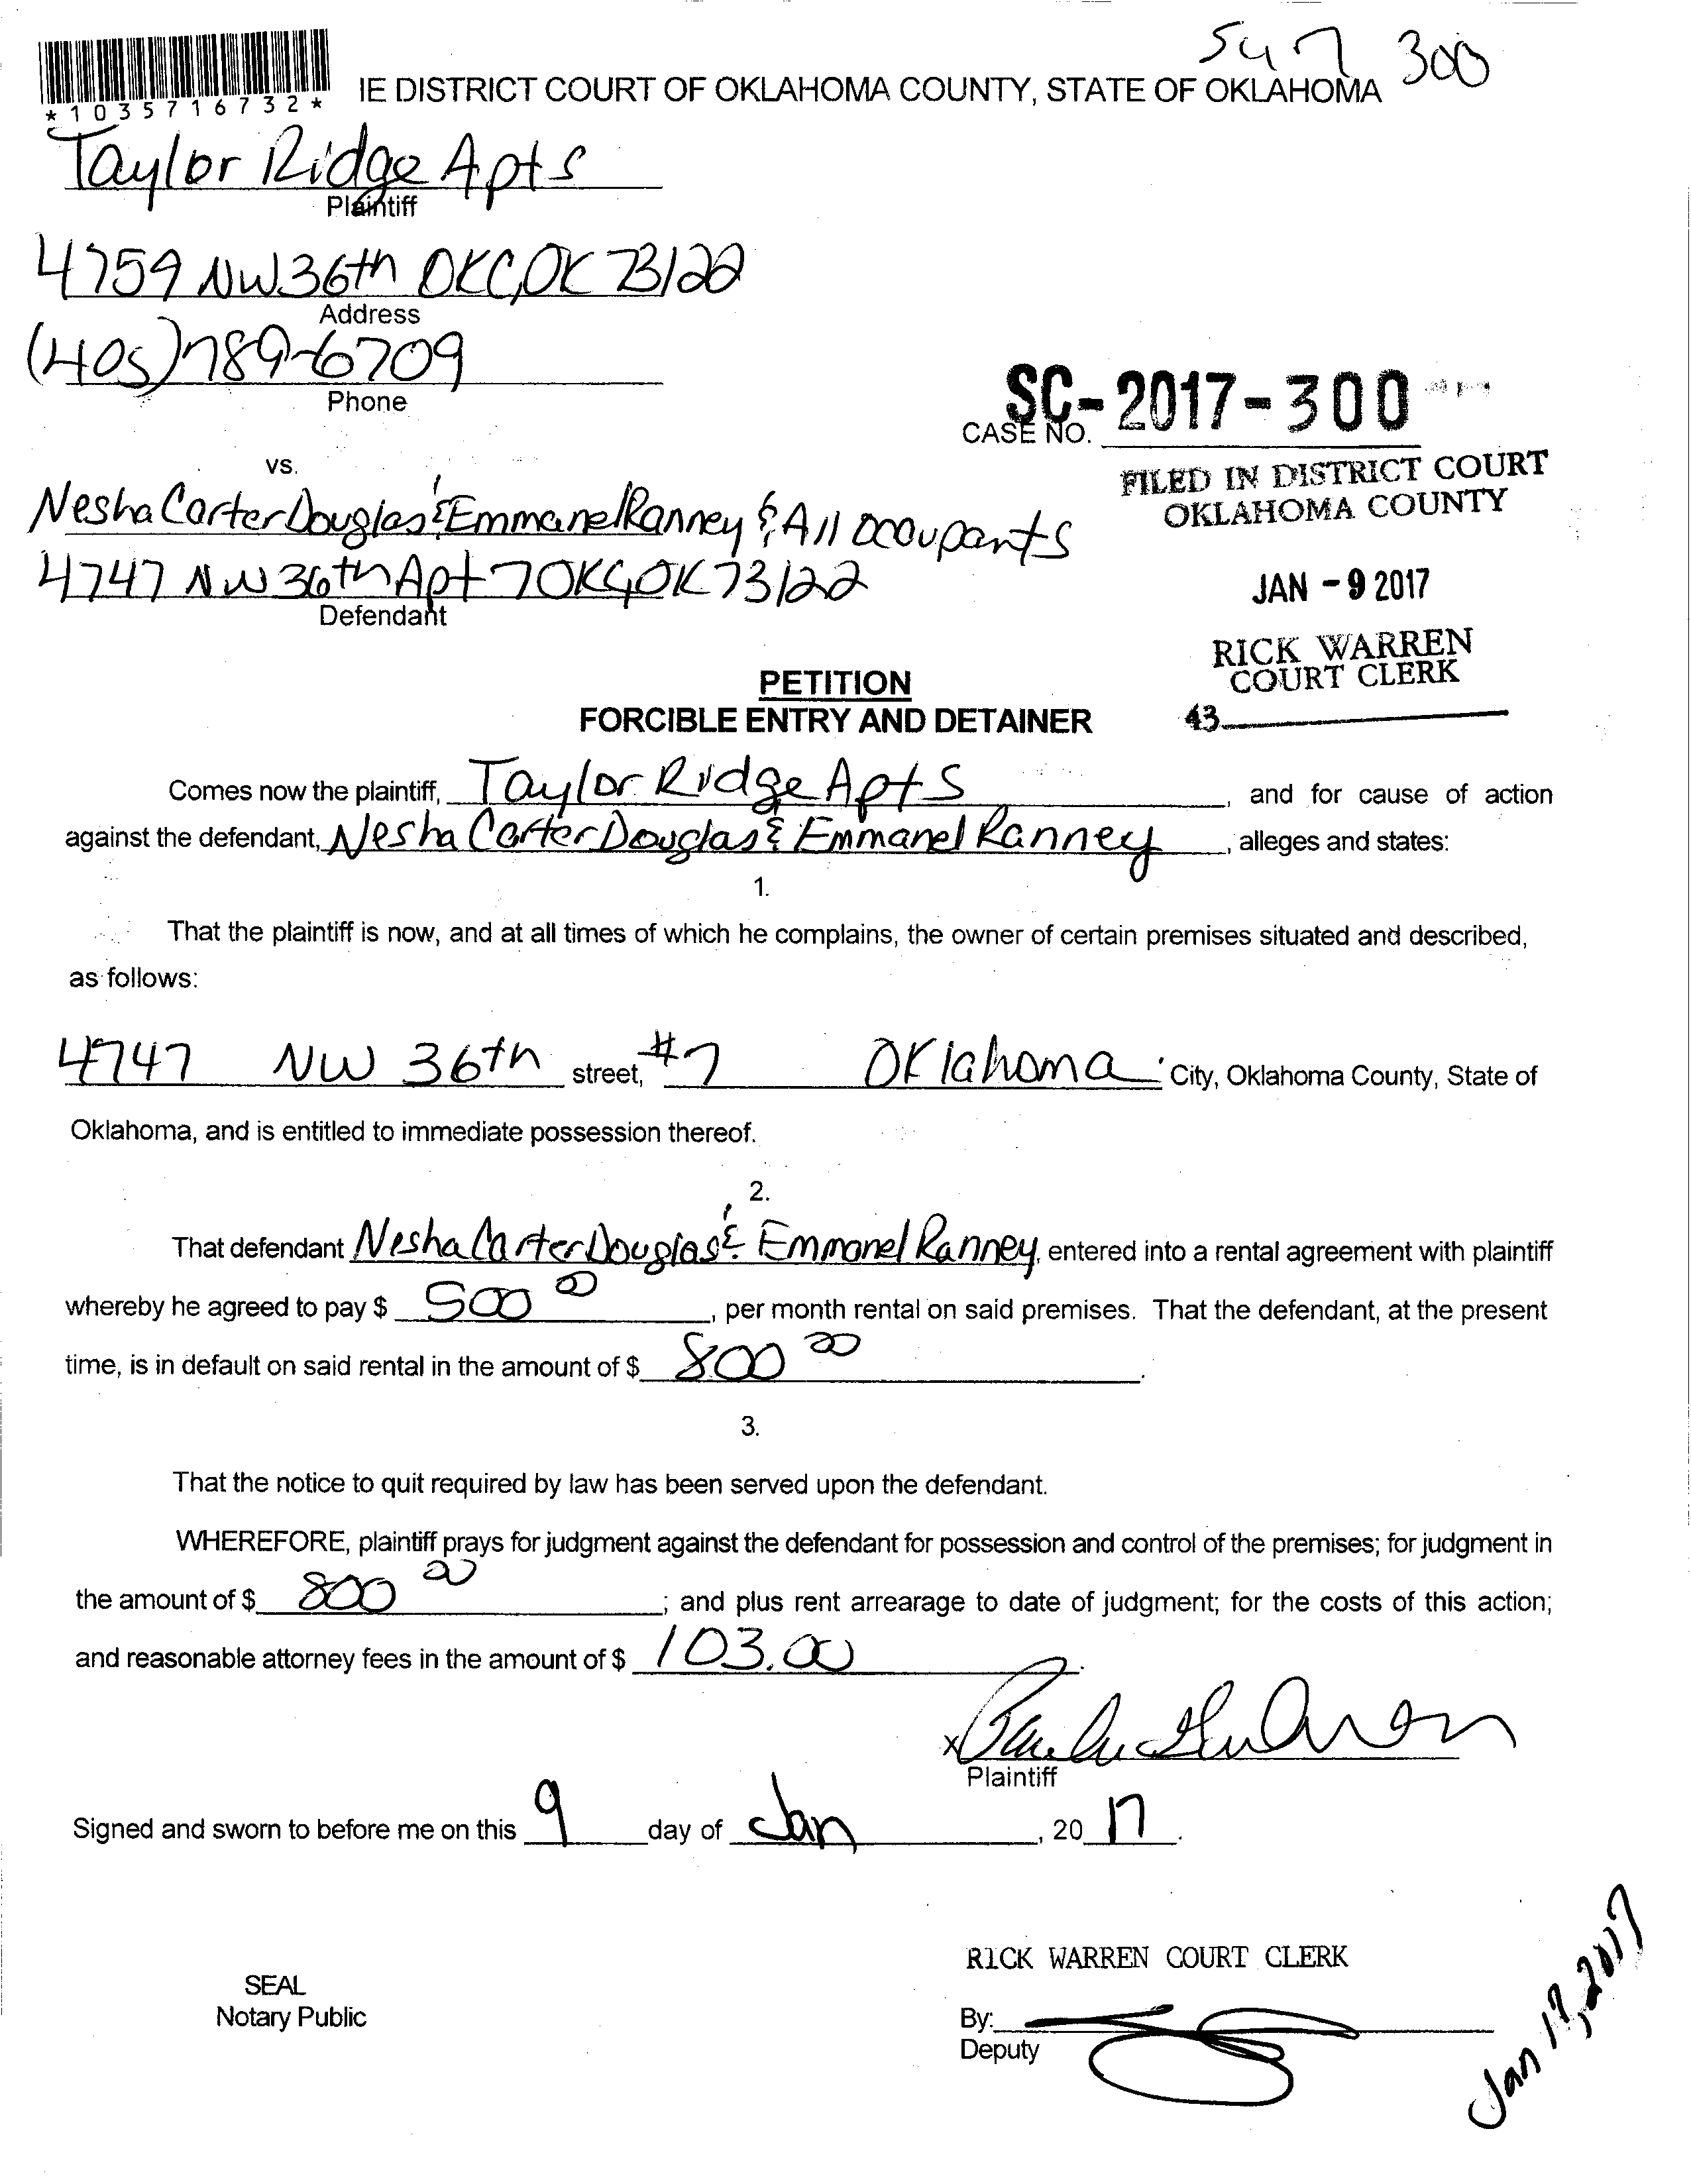 300
*1035716732*
IE DISTRICT COURT OF OKLAHOMA COUNTY, STATE OF OKLAHOMA
Taylor Ridge Apts
Plaintiff
4759 NW 36th OKC, OK 73122
Address
(405) 789-6709
Phone
SC-2017-300
CASE NO.
vs.
FILED IN DISTRICT COURT
OKLAHOMA COUNTY
Nesha Carter Douglas & Emmanel Ranney & All occupants
4747 NW 36th Apt 7 OKC, OK 73122
Defendant
JAN - 9 2017
RICK WARREN
COURT CLERK
43
PETITION
FORCIBLE ENTRY AND DETAINER
Comes now the plaintiff, Taylor Ridge Apts, and for cause of action
against the defendant, Nesha Carter Douglas & Emmanel Ranney, alleges and states:
1.
That the plaintiff is now, and at all times of which he complains, the owner of certain premises situated and described,
as follows:
4747 NW 36th street, #7 Oklahoma City, Oklahoma County, State of
Oklahoma, and is entitled to immediate possession thereof.
2.
That defendant Nesha Carter Douglas & Emmanel Ranney, entered into a rental agreement with plaintiff
whereby he agreed to pay $ 500 00, per month rental on said premises. That the defendant, at the present
time, is in default on said rental in the amount of $ 800 00.
3.
That the notice to quit required by law has been served upon the defendant.
WHEREFORE, plaintiff prays for judgment against the defendant for possession and control of the premises; for judgment in
the amount of $ 800 00; and plus rent arrearage to date of judgment; for the costs of this action;
and reasonable attorney fees in the amount of $ 103.00.
X
Plaintiff
Signed and sworn to before me on this 9 day of Jan, 20 17.
RICK WARREN COURT CLERK
SEAL
Notary Public
By:
Deputy